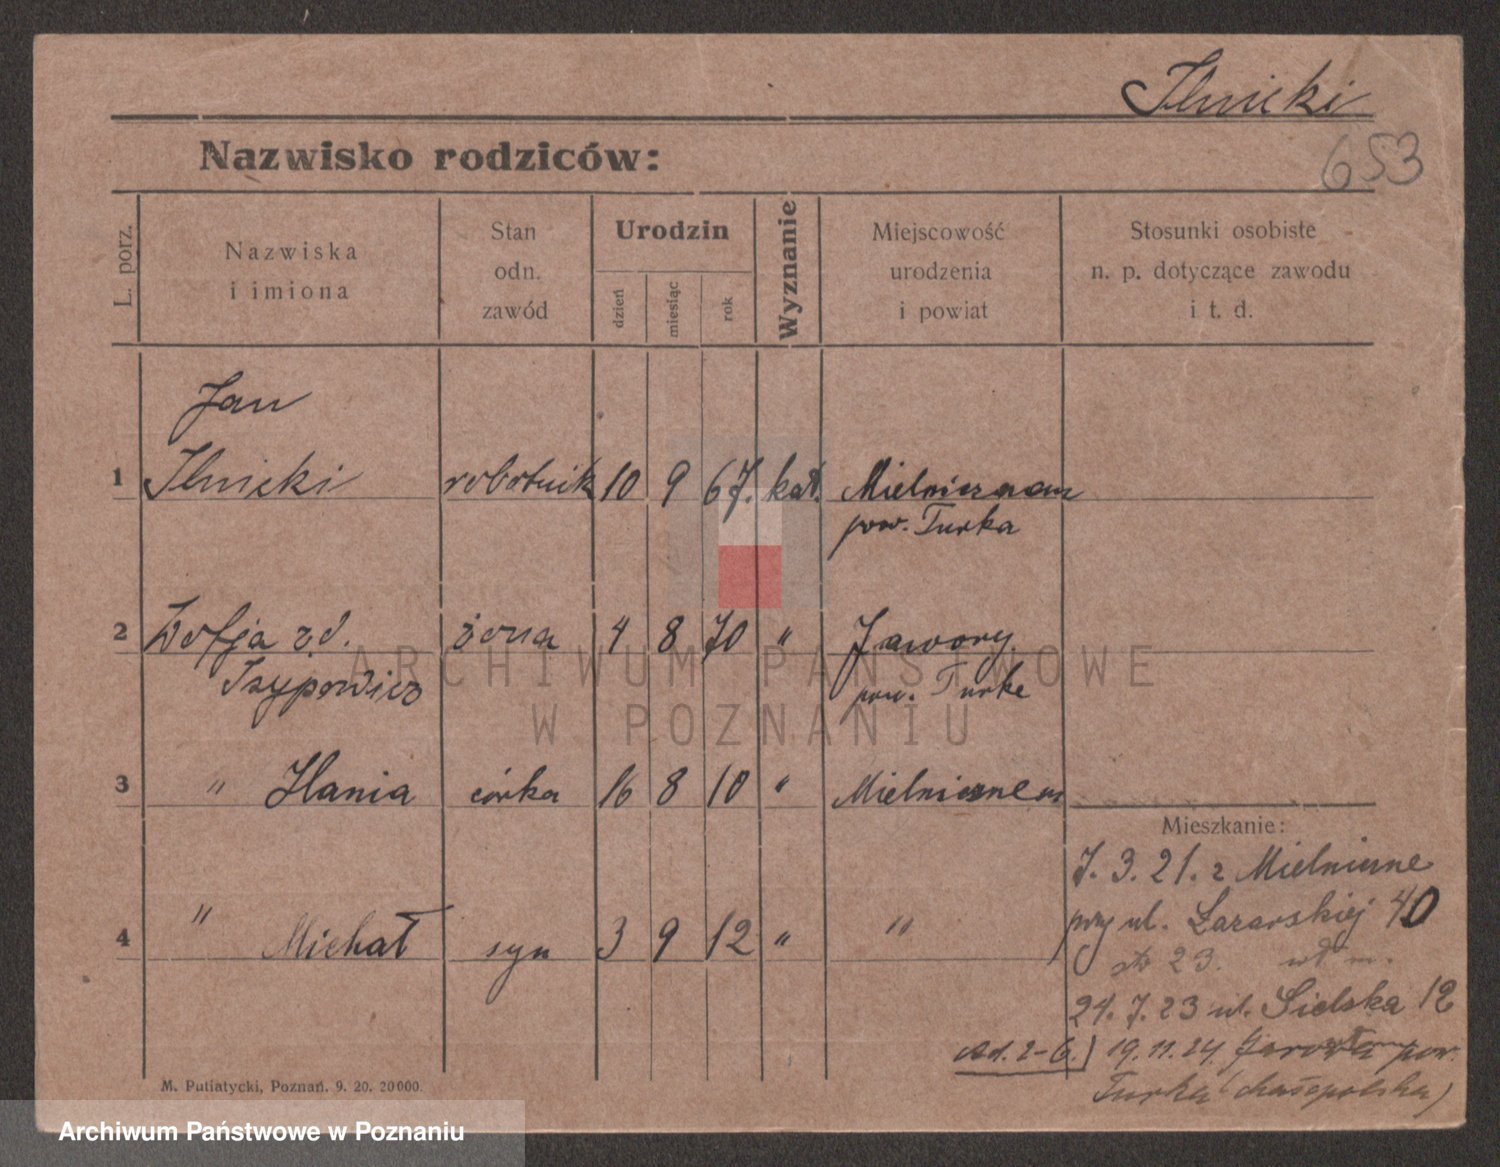 Ilnicki
653
Nazwisko rodziców:
L. porz.
Nazwiska
i imiona
Stan
odn.
zawód
Urodzin
dzień
miesiąc
rok
Wyznanie
Miejscowość
urodzenia
i powiat
Stosunki osobiste
n. p. dotyczące zawodu
i t. d.
Jan
1 Ilnicki robotnik 10 9 67. kat.
pow. Turka
2 Zofja z d. żona 4 8 70 " Jawory
pow. Turka
3 " Hania córka 16 8 10 " Mielniczne
4 " Michał syn 3 9 12 " "
Mieszkanie:
7. 3. 21. z Mielniczne
przy ul. Łazarskiej 40
23.
24. 7. 23 ul. Sielska 12
ad. 2-6.) 19. 11. 24. pow.
Turka (Małopolska)
M. Putiatycki, Poznań. 9. 20. 20000.
ARCHIWUM PAŃSTWOWE
W POZNANIU
Archiwum Państwowe w Poznaniu